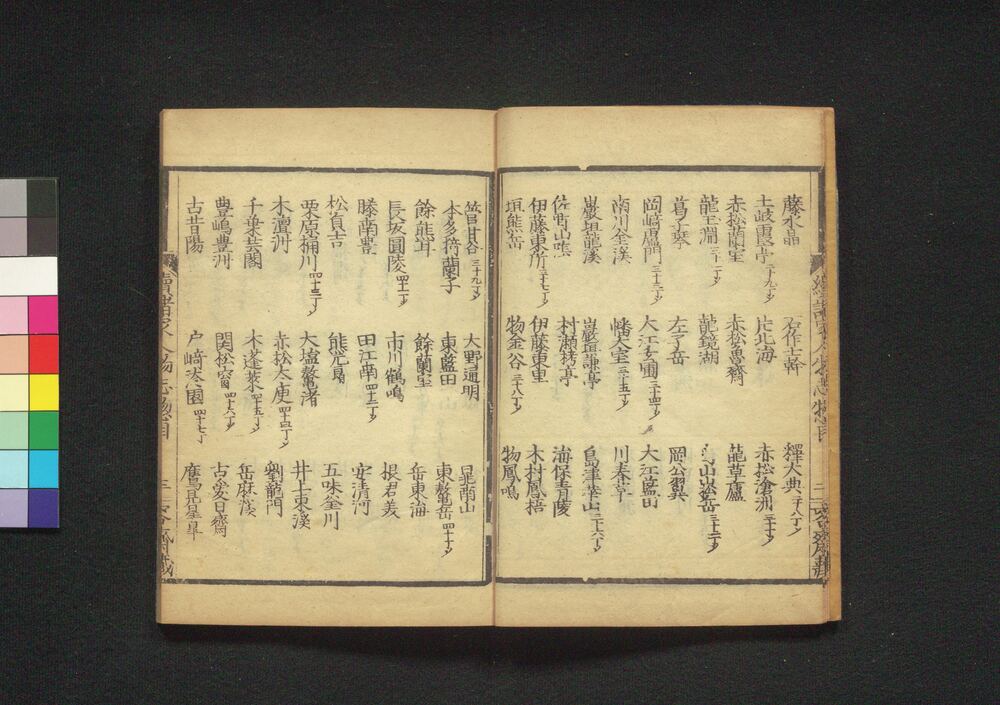 藤水晶
石作士幹
釋大典 二十八丁
土岐霞亭 二十九丁
片北海
赤松滄洲 三十丁
赤松蘭室
赤松魯齋
龍草廬
龍玉淵 三十二丁
龍鏡湖
鳥山崧岳 三十二丁
葛子琴
左子岳
岡公翼
岡崎廬門 三十三丁
大江玄圃 三十四丁
大江藍田
南川金溪
幡文室 三十五丁
川泰亭
巖垣龍溪
巖垣謙亭
島津華山 三十六丁
佐
村瀬栲亭
清保青陵
伊藤東所 三十七丁
伊藤東里
木村鳳梧
垣熊岳
物金谷 三十八丁
物鳳鳴
續諸家人物志總目
菅甘谷 三十九丁
大野通明
晁南山
本多猗蘭子
東藍田
東鼇岳 四十丁
餘熊耳
餘蘭室
岳東海
長坂圓陵 四十一丁
市川鶴鳴
根君美
滕南豊
田江南 四十二丁
安清河
松貞吉
熊
五味釜川
栗原桶川 四十三丁
大塩鼇渚
井上東溪
木澶洲
赤松太庾 四十四丁
劉龍門
千葉芸閣
木蓬萊 四十五丁
岳麻溪
豊嶋豊洲
関松窗 四十六丁
古処日齋
古昔陽
戸崎淡園 四十七丁
鷹見星皐
續諸家人物志總目